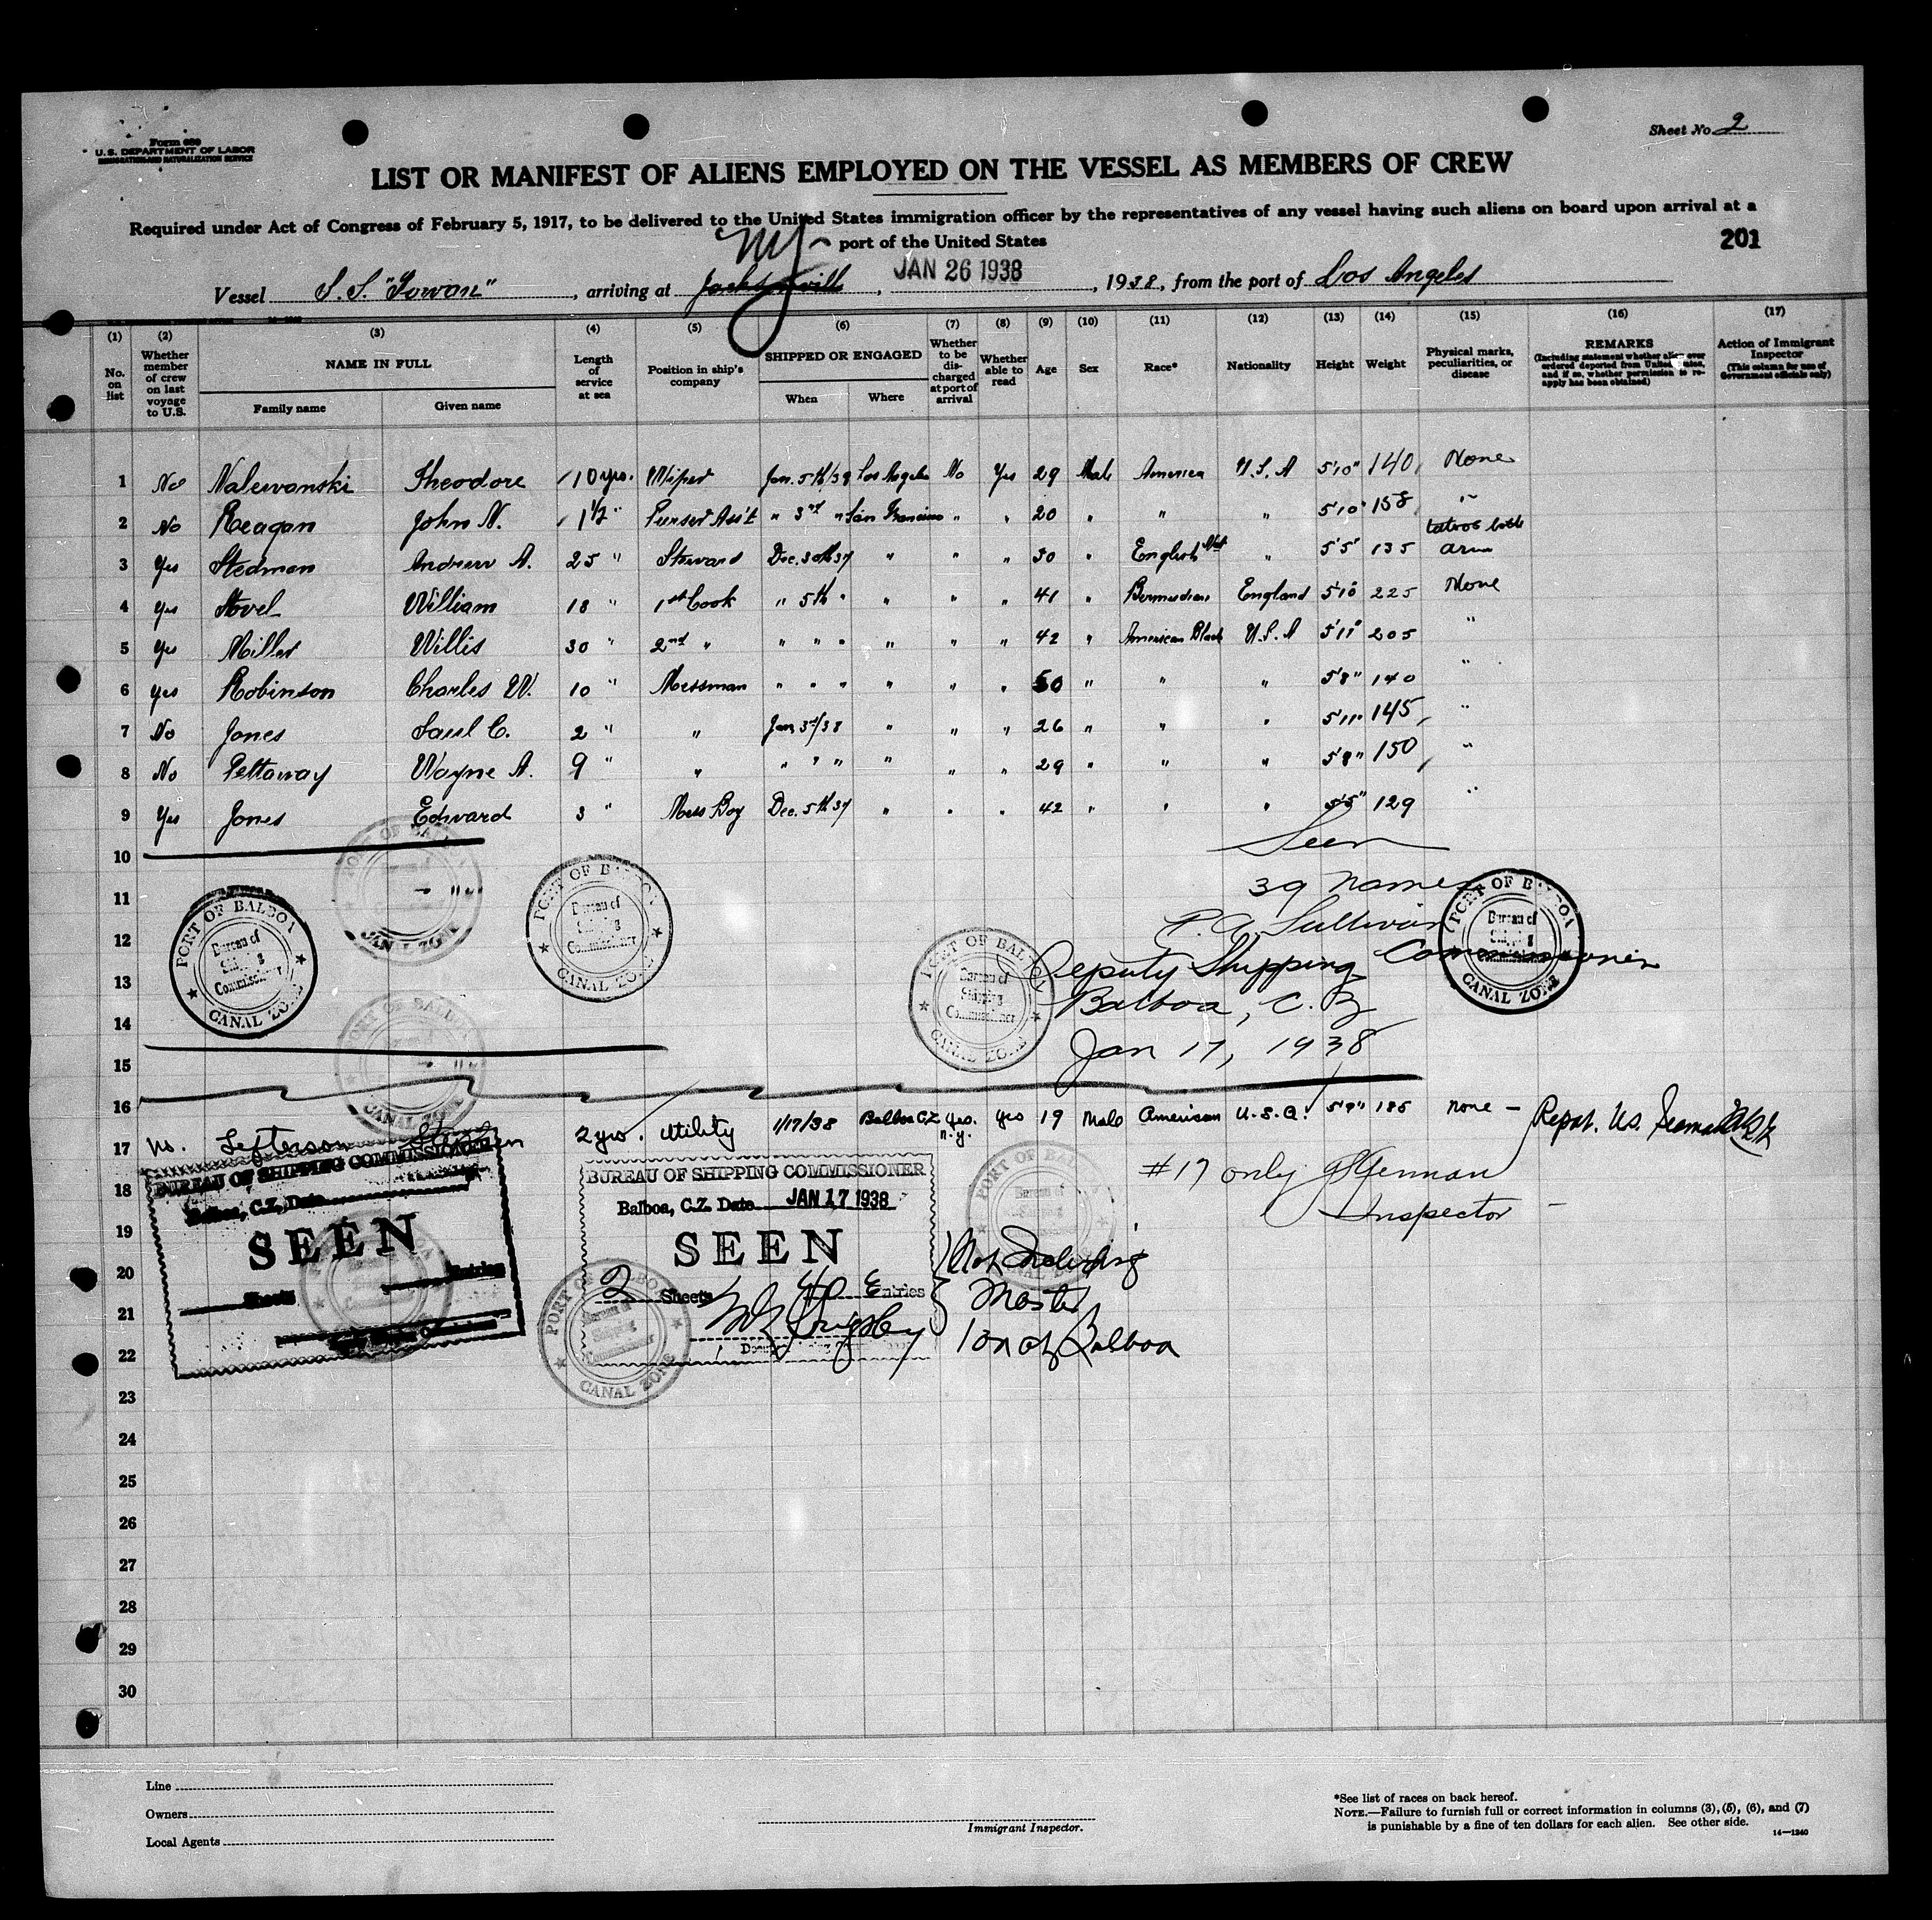 Form 680
U.S. DEPARTMENT OF LABOR
IMMIGRATION AND NATURALIZATION SERVICE
Sheet No. 2
LIST OR MANIFEST OF ALIENS EMPLOYED ON THE VESSEL AS MEMBERS OF CREW
Required under Act of Congress of February 5, 1917, to be delivered to the United States immigration officer by the representatives of any vessel having such aliens on board upon arrival at a
port of the United States
201
NY
Vessel S.S. "Iowan", arriving at Jacksonvill, JAN 26 1938, 1938, from the port of Los Angeles
(1) (2) (3) (4) (5) (6) (7) (8) (9) (10) (11) (12) (13) (14) (15) (16) (17)
No. on list Whether member of crew on last voyage to U.S. NAME IN FULL Family name Given name Length of service at sea Position in ship's company SHIPPED OR ENGAGED When Where Whether to be discharged at port of arrival Whether able to read Age Sex Race* Nationality Height Weight Physical marks, peculiarities, or disease REMARKS (Including statement whether alien ever ordered deported from United States, and if so, whether permission to reapply has been obtained) Action of Immigrant Inspector (This column for use of Government officials only)
1 No Nalewanski Theodore 10 yrs. Wiper Jan. 5th/38 Los Angeles No Yes 29 Male America U.S.A 5'10" 140 None
2 No Reagan John N. 1 1/2 " Purser Ass't " 3rd " San Francisco " " 20 " " " 5'10" 158 "
3 Yes Stedman Andrew A. 25 " Steward Dec. 30th 37 " " " 50 " English Nat " 5'5" 135 tatoos both arm
4 Yes Stovel William 18 " 1st Cook " 5th " " " " 41 " Bermudian England 5'10" 225 None
5 Yes Miller Willis 30 " 2nd " " " " " " " 42 " American Black U.S.A 5'11" 205 "
6 Yes Robinson Charles W. 10 " Messman " " " " " " 50 " " " 5'8" 140 "
7 No Jones Saul C. 2 " " Jan 3rd/38 " " " 26 " " " 5'11" 145 "
8 No Pettaway Wayne A. 9 " " " " " " " " 29 " " " 5'8" 150 "
9 Yes Jones Edward 3 " Mess Boy Dec. 5th 37 " " " 42 " " " 5'5" 129 "
10 Seen
11 39 names
12 P. A. Sullivan
13 Deputy Shipping Commissioner
14 Balboa, C.Z
15 Jan 17, 1938
PORT OF BALBOA
Bureau of Shipping Commissioner
CANAL ZONE
PORT OF BALBOA
Bureau of Shipping Commissioner
CANAL ZONE
PORT OF BALBOA
Bureau of Shipping Commissioner
CANAL ZONE
PORT OF BALBOA
Bureau of Shipping Commissioner
CANAL ZONE
16
17 No. Jefferson Stephen 2 yrs. Utility 1/17/38 Balboa C.Z. Yes. n.y. Yes 19 Male American U.S.A. 5'9" 185 None - Repat. U.S. Seaman
#17 only
Inspector
18
19
20
21
22
23
24
25
26
27
28
29
30
BUREAU OF SHIPPING COMMISSIONER
Balboa, C.Z. Date
SEEN
Sheets Entries
BUREAU OF SHIPPING COMMISSIONER
Balboa, C.Z. Date JAN 17 1938
SEEN
2 Sheets 40 Entries
Not Including
Master
1 on at Balboa
PORT OF BALBOA
Bureau of Shipping Commissioner
CANAL ZONE
Line
Owners
Local Agents
Immigrant Inspector.
*See list of races on back hereof.
NOTE.—Failure to furnish full or correct information in columns (3), (5), (6), and (7)
is punishable by a fine of ten dollars for each alien. See other side.
14—1240